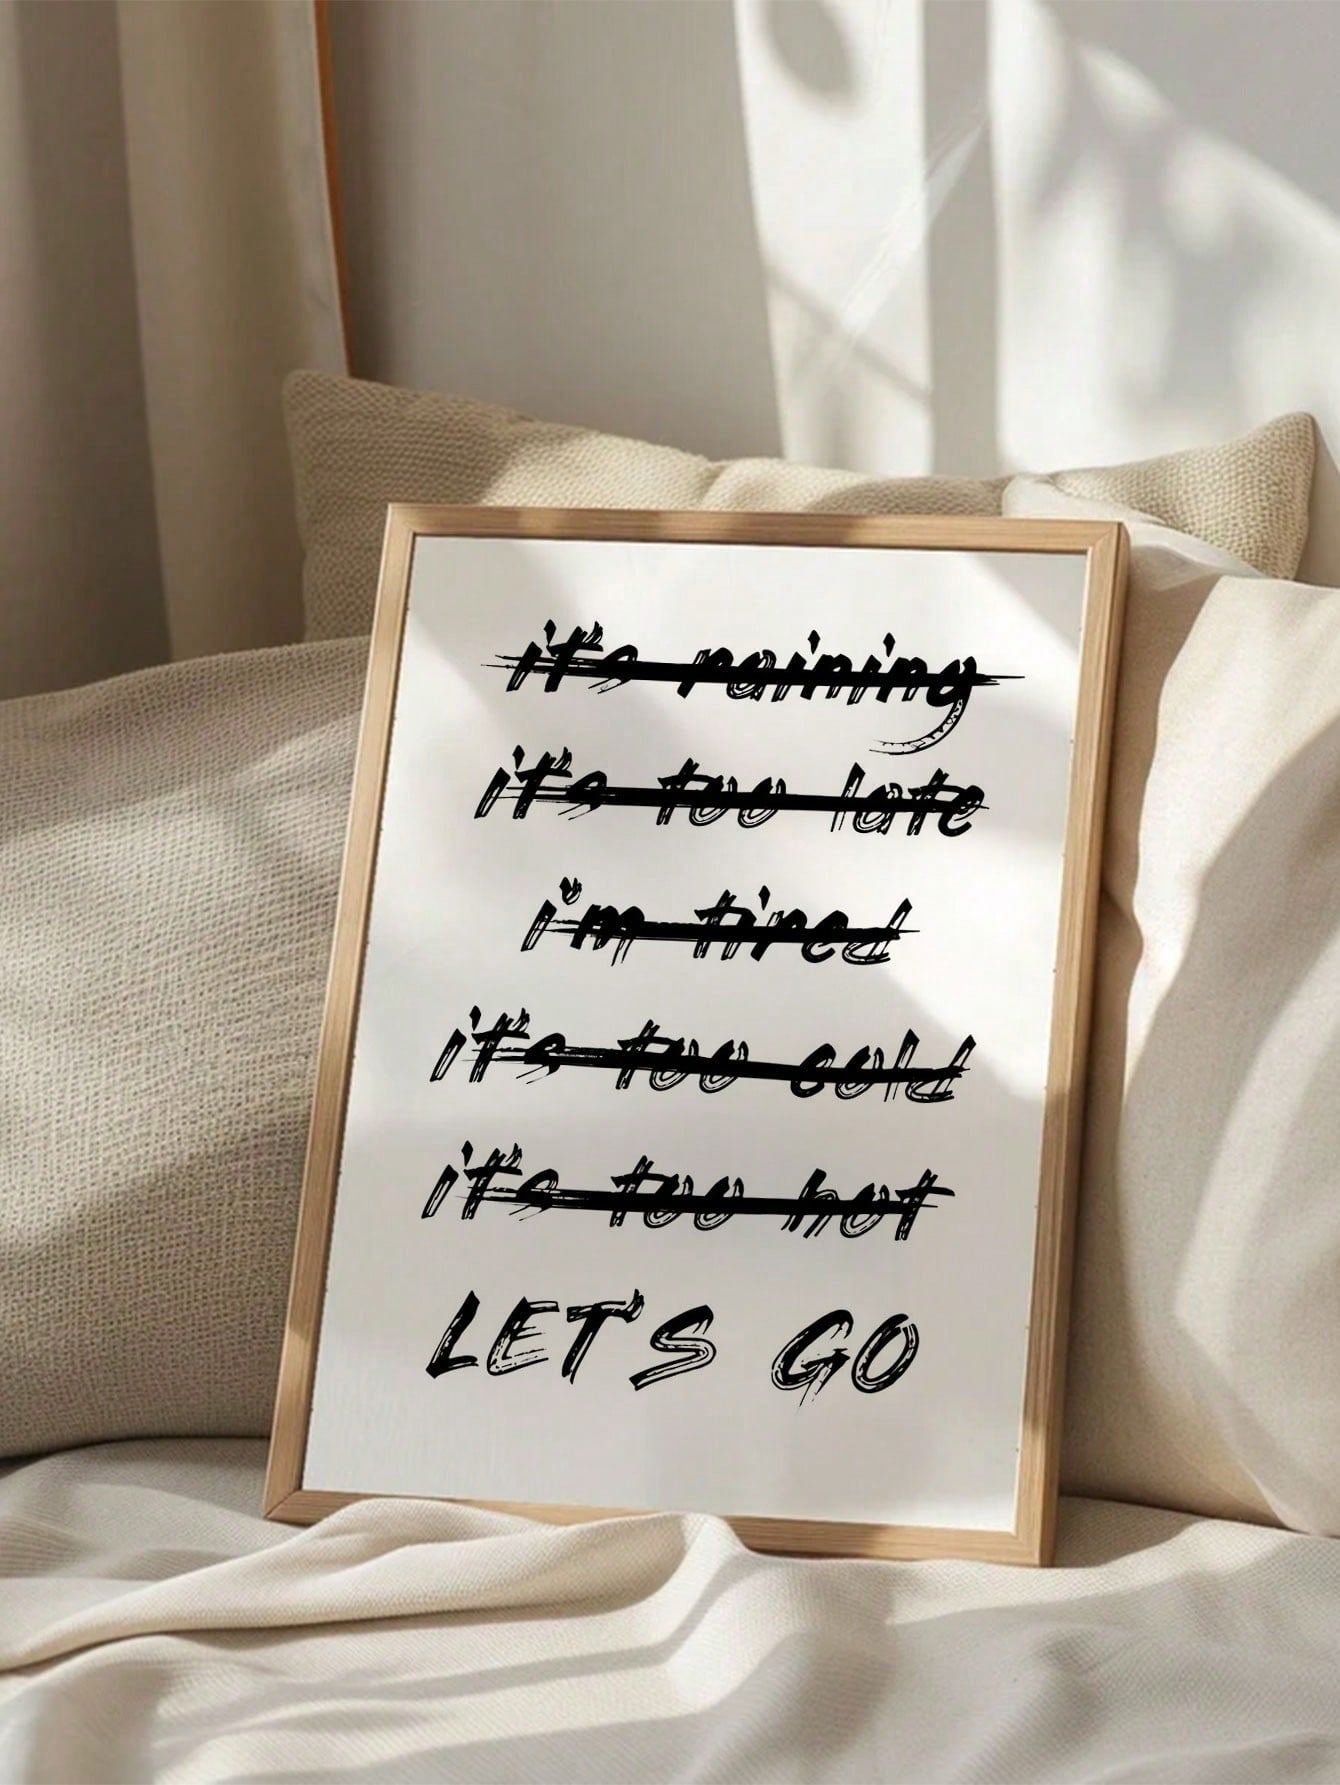 it's raining
it's too late
i'm tired
it's too cold
it's too hot
LET'S GO